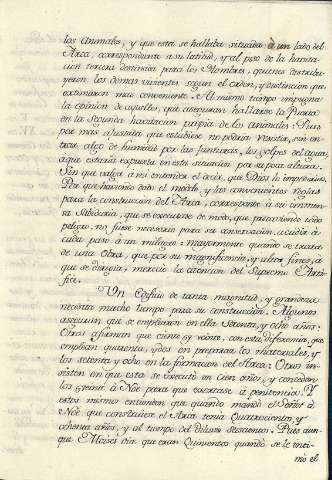 los Animales, y que esta se hallaba situada à un lado del
Arca, correspondiente a su latitud, y al piso de la habita-
cion tercera destinada para los Hombres, quienes distribu-
yeron los demas vivientes segun el orden, y distincion que
estimaron mas conveniente. Al mismo tiempo impugna
la opinion de aquellos, que aseguran hallarse la Puerta
en la Segunda habitacion propia de los animales: Pues
por mas ajustada que estubiese no podria resistir, sin en-
trar algo de humedad por las junturas, los golpes del agua,
a que estaria expuesta en esta situacion por su poca altura.
Sin que valga á mi entender el decir, que Dios lo impediria.
Por que haviendo dado el modelo, y las convenientes reglas
para la construccion del Arca, correspondia á su immen-
sa Sabiduria, que se executase de modo, que precaviendo todo
peligro no fuese necesario para su conservacion acudir á
cada paso á un milagro: mayormente quando se trataba
de una Obra, que por su magnificencia, y altos fines, á
que se dirigia, mereció la atencion del Supremo Artí-
fice.
Un Edificio de tanta magnitud, y grandeza
necesita mucho tiempo para su construccion. Algunos
aseguran que se emplearon en ella setenta, y ocho años.
Otros afirman que ciento y veinte, con esta diferencia, que
emplean quarenta, y dos en preparar los materiales, y
los setenta y ocho en la formacion del Arca. Otros in-
sisten en que esta se executó en cien años, y conceden
los veinte á Noè para que exortase á penitencia. Y
estos mismos entienden que quando mandó el Señor á
Noè que construiese el Arca tenia Quatrocientos, y
ochenta años, y al tiempo del diluvio Seiscientos. Pues aun-
que Moises dice que eran Quinientos quando se le inti-
mó el